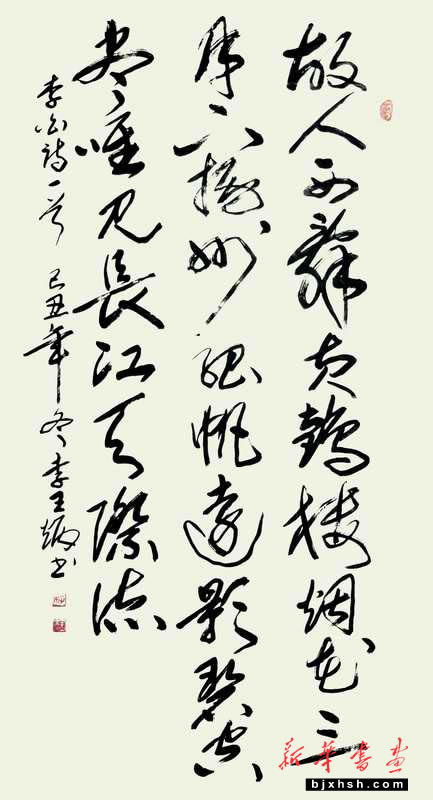 故人西辞黄鹤楼烟花三
月下扬州孤帆远影碧空
尽唯见长江天际流
李白诗一首 己丑年冬 李王 书
新华书画
bjxhsh.com